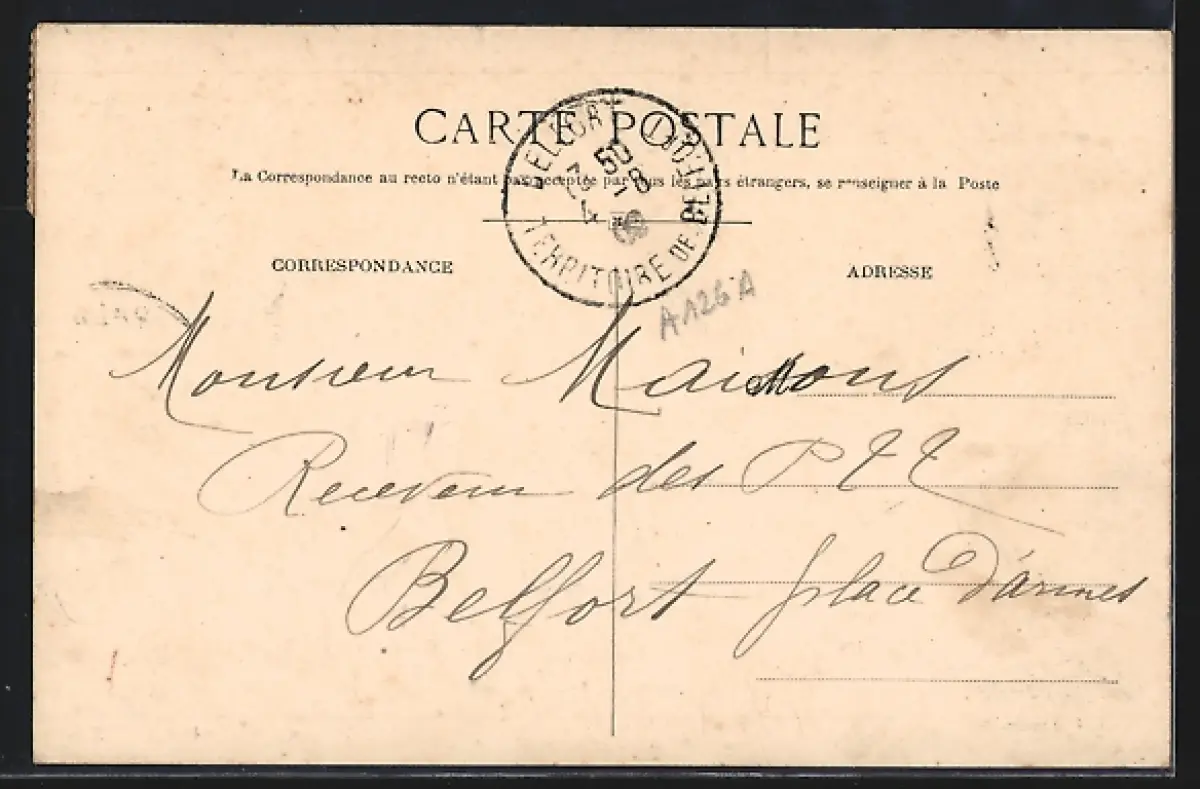 CARTE POSTALE
La Correspondance au recto n'étant pas acceptée par tous les pays étrangers, se renseigner à la Poste
BELFORT
TERRITOIRE DE BELFORT
CORRESPONDANCE
ADRESSE
A126A
Monsieur
Receveur des PTT
Belfort place d'armes